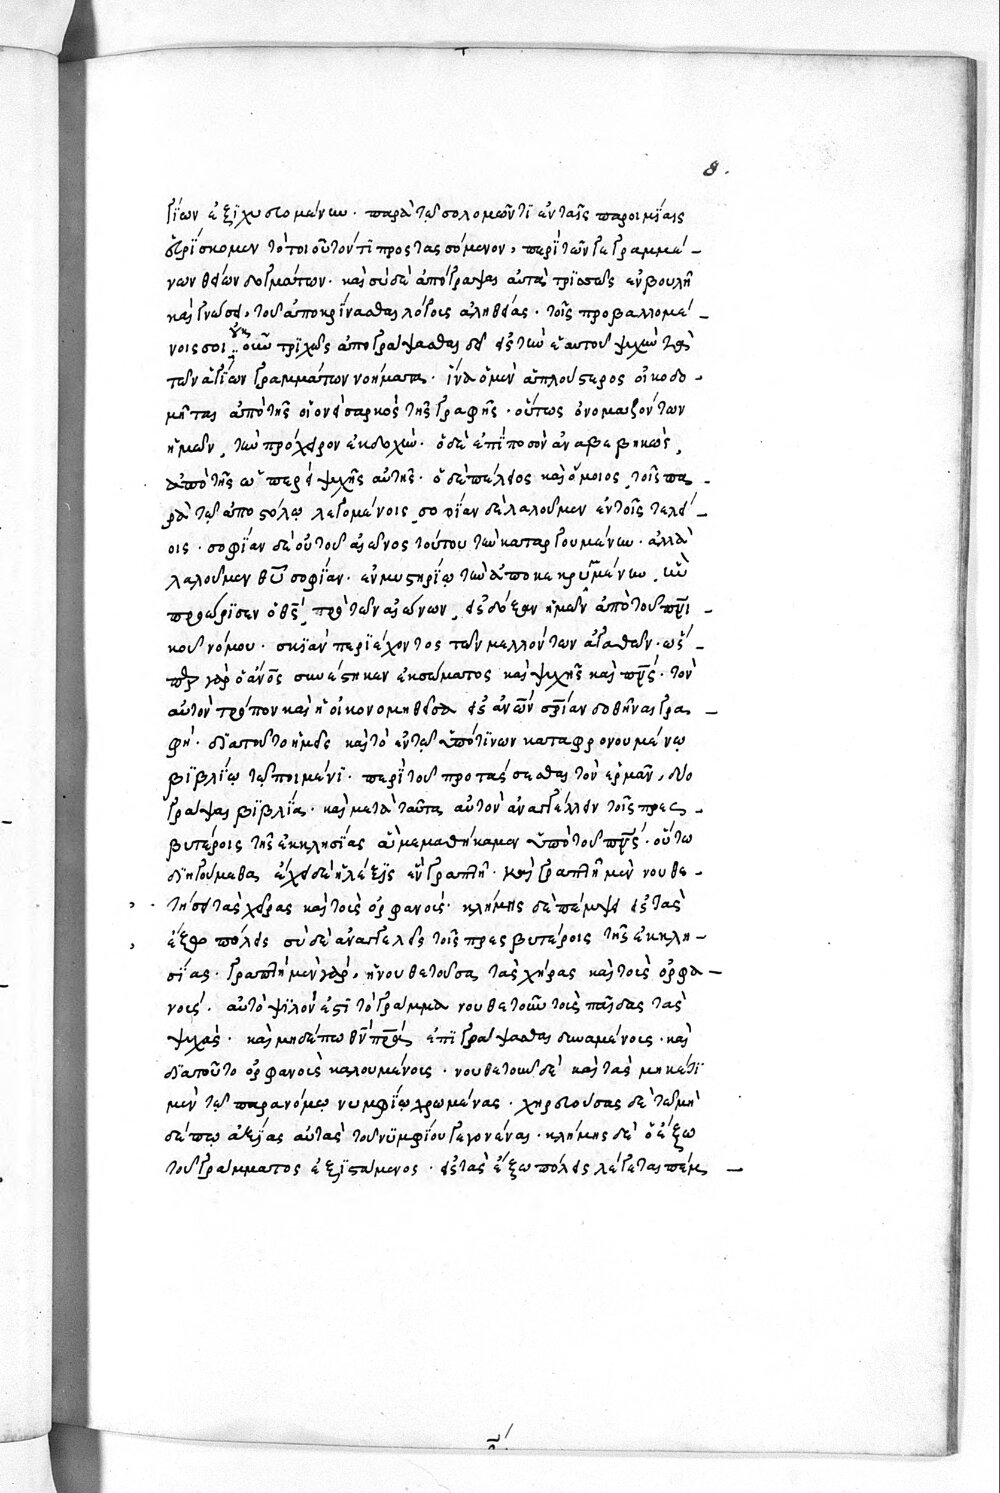 8.
γίων ἐξιχνευομένω· παρὰ τῷ σολομῶντι ἐν ταῖς παροιμίαις
εὑρίσκομεν τὸ τοιοῦτόν τι προστασσόμενον, περὶ τῶν γεγραμμέ–
νων θείων δογμάτων· καὶ σὺ δὲ ἀπόγραψαι αὐτὰ τρισσῶς ἐν βουλῇ
καὶ γνώσει, τοῦ ἀποκρίνασθαι λόγοις ἀληθείας· τοῖς προβαλλομέ–
νοις σοι οὐκοῦν τριχῶς ἀπογράψασθαι δεῖ εἰς τὴν ἑαυτοῦ ψυχὴν τὰ
τῶν ἁγίων γραμμάτων νοήματα· ἵνα ὁ μὲν ἁπλούστερος οἰκοδο–
μῆται ἀπὸ τῆς οἱονεὶ σαρκὸς τῆς γραφῆς· οὕτως ὀνομαζόντων
ἡμῶν, τὴν πρόχειρον ἐκδοχήν· ὁ δὲ ἐπὶ ποσὸν ἀναβεβηκώς,
ἀπὸ τῆς ὡσπερεὶ ψυχῆς αὐτῆς· ὁ δὲ τέλειος καὶ ὅμοιος τοῖς πα–
ρὰ τῷ ἀποστόλῳ λεγομένοις, σοφίαν δὲ λαλοῦμεν ἐν τοῖς τελεί–
οις· σοφίαν δὲ οὐ τοῦ αἰῶνος τούτου τῶν καταργουμένων· ἀλλὰ
λαλοῦμεν θῦ σοφίαν· ἐν μυστηρίῳ τὴν ἀποκεκρυμμένην, ἣν
προώρισεν ὁ θς πρὸ τῶν αἰώνων, εἰς δόξαν ἡμῶν ἀπὸ τοῦ πνι–
κοῦ νόμου· σκιὰν περιέχοντος τῶν μελλόντων ἀγαθῶν· ὥσ–
περ γὰρ ὁ ἄνος συνέστηκεν ἐκ σώματος καὶ ψυχῆς καὶ πνς· τὸν
αὐτὸν τρόπον καὶ ἡ οἰκονομηθεῖσα εἰς ἀνων σρίαν δοθῆναι γρα–
φή· διὰ τοῦτο ἡμεῖς καὶ τὸ ἐν τῷ ὑπό τινων καταφρονουμένῳ
βιβλίῳ τῷ ποιμένι· περὶ τοῦ προστάσσεσθαι τὸν ἑρμᾶν, δύο
γράψαι βιβλία· καὶ μετὰ ταῦτα αὐτὸν ἀναγγέλλειν τοῖς πρεσ–
βυτέροις τῆς ἐκκλησίας ἃ μεμαθήκαμεν ὑπὸ τοῦ πνς· οὕτω
διηγούμεθα, ἔχει δὲ ἡ λέξις ἐν γραπτῇ· καὶ γραπτὴ μὲν νουθε–
τήσει τὰς χήρας καὶ τοὺς ὀρφανούς· κλήμης δὲ πέμψει εἰς τὰς
ἔξω πόλεις σὺ δὲ ἀναγγελεῖς τοῖς πρεσβυτέροις τῆς ἐκκλη–
σίας· γραπτὴ μὲν γάρ, ἡ νουθετοῦσα τὰς χήρας καὶ τοὺς ὀρφα–
νούς· αὐτὸ ψιλόν ἐστι τὸ γράμμα νουθετοῦν τοὺς παῖδας τὰς
ψυχάς· καὶ μηδέπω θν πρα ἐπιγράψασθαι δυναμένους· καὶ
διὰ τοῦτο ὀρφανοὺς καλουμένους· νουθετοῦν δὲ καὶ τὰς μηκέτι
μὲν τῷ παρανόμῳ νυμφίῳ χρωμένας· χηρευούσας δὲ τῷ μη–
δέπω ἀξίας αὐτὰς τοῦ νυμφίου γεγονέναι· κλήμης δὲ ὁ ἔξω
τοῦ γράμματος ἐξιστάμενος· εἰς τὰς ἔξω πόλεις λέγεται πέμ–